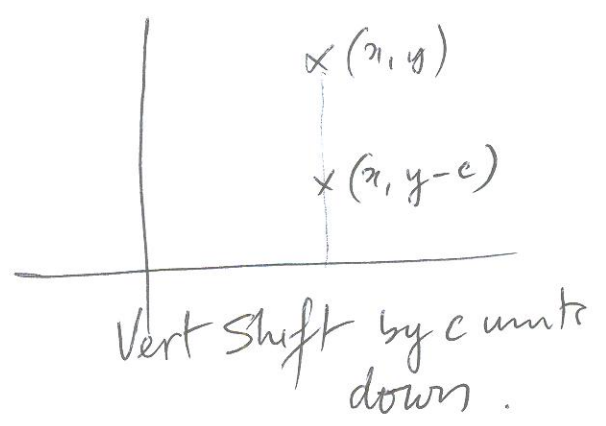 (x, y)
(x, y-c)
Vert Shift by c units
down.